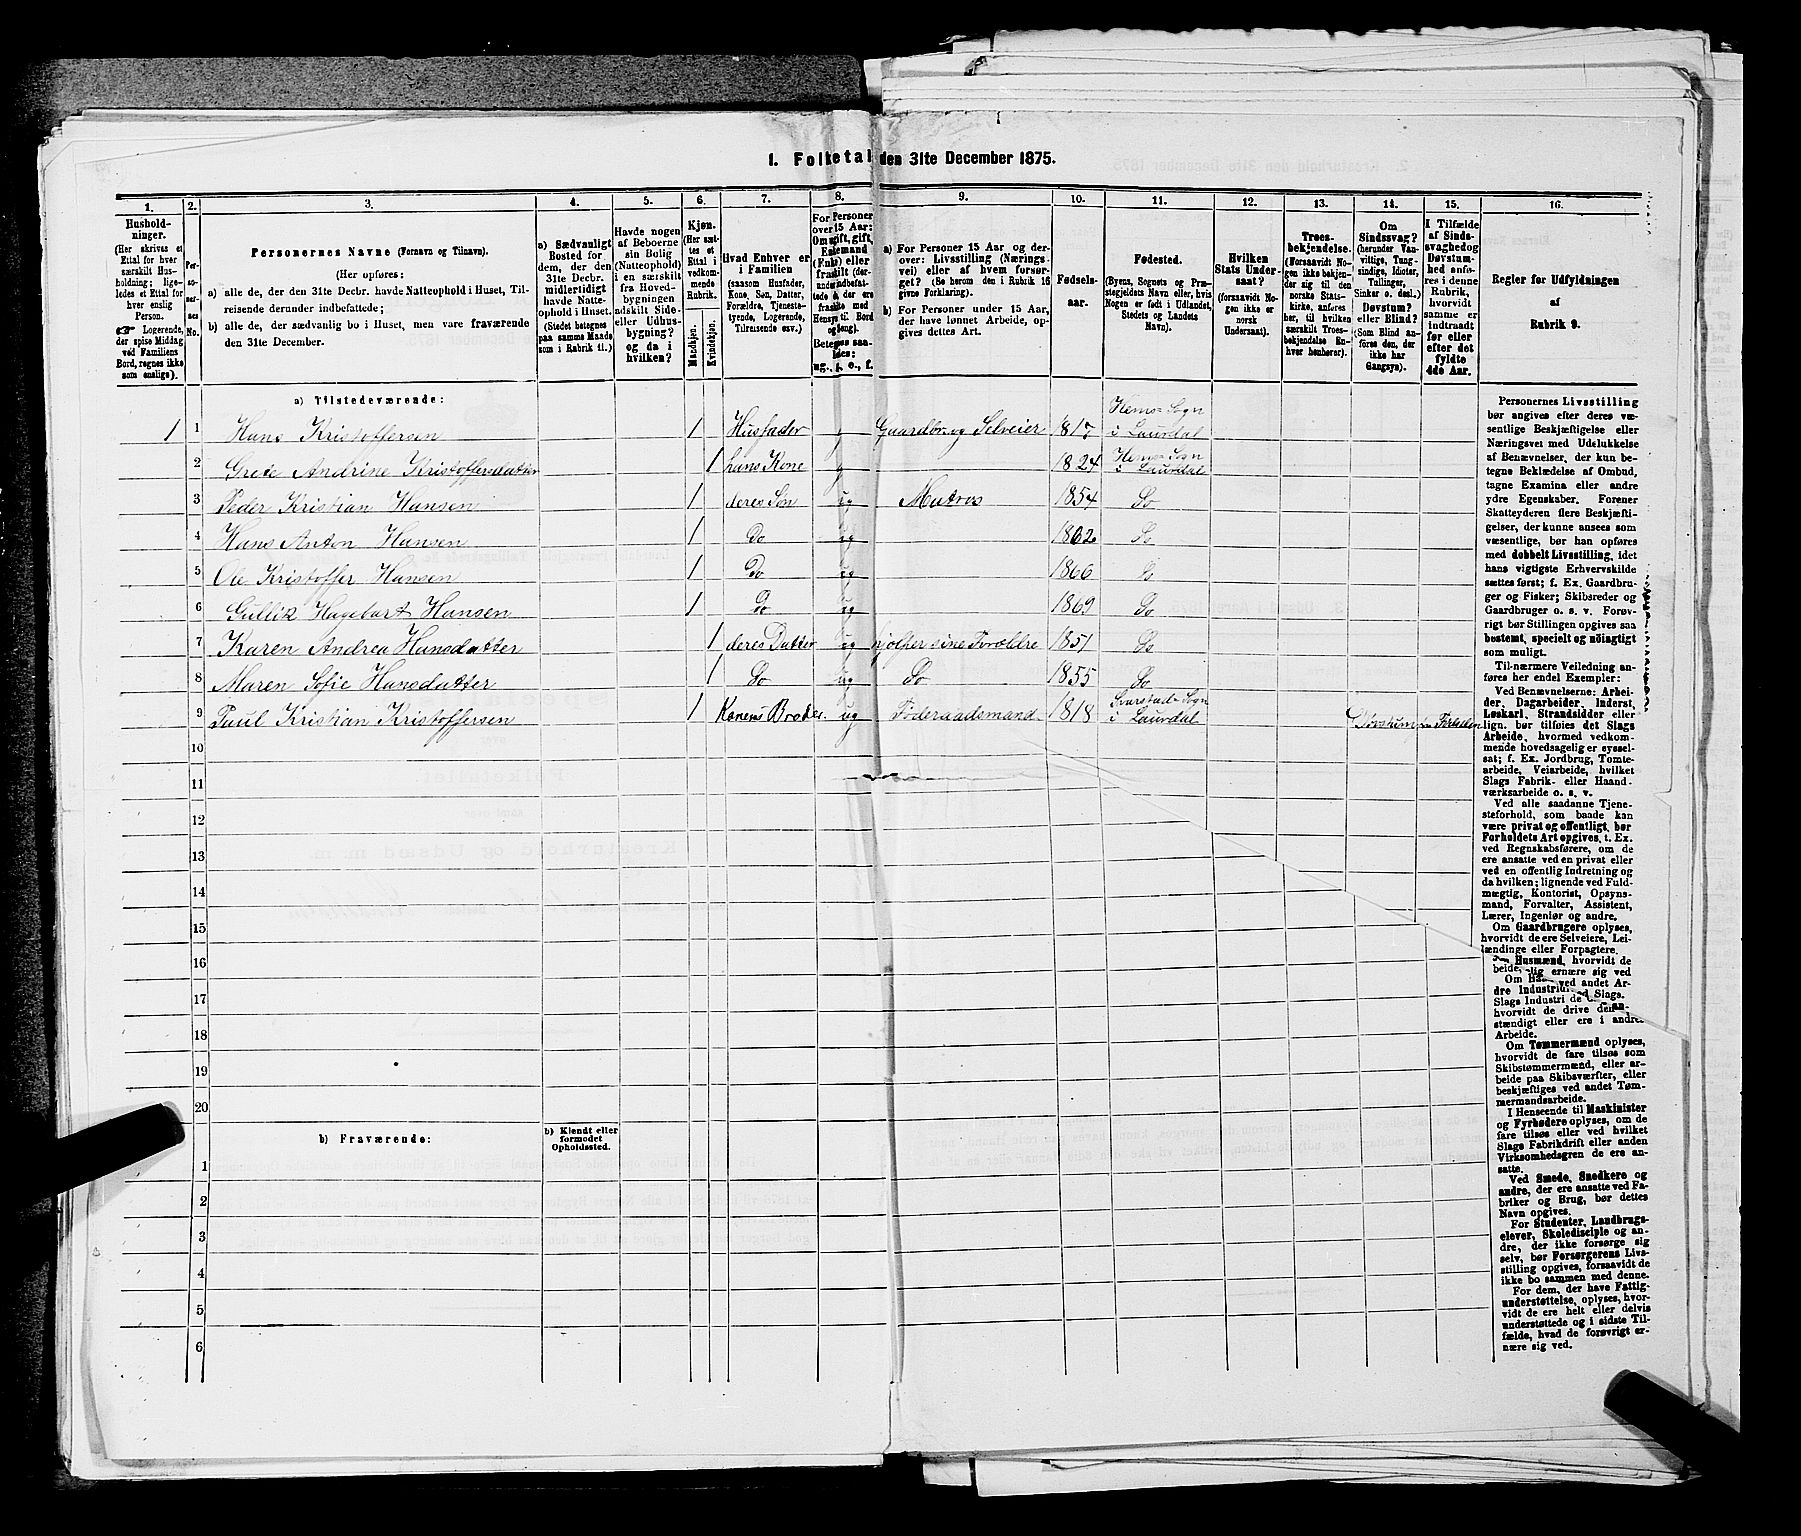 1. Folketal den 31te December 1875.
1. 2. 3. 4. 5. 6. 7. 8. 9. 10. 11. 12. 13. 14. 15. 16.
Hushold-
ninger.
(Her skrives et
Ettal for hver
særskilt Hus-
holdning; lige-
ledes et Ettal for
hver enslig
Person.
☞ Logerende,
der spise Middag
ved Familiens
Bord, regnes ikke
som enslige).
Per-
so-
ner-
nes
No.
Personernes Navne (Fornavn og Tilnavn).
(Her opføres:
a) alle de, der den 31te Decbr. havde Natteophold i Huset, Til-
reisende derunder indbefattede;
b) alle de, der sædvanlig bo i Huset, men vare fraværende
den 31te December.
a) Sædvanligt
Bosted for
dem, der den
31te Decbr.
midlertidigt
havde Natte-
ophold i Huset.
(Stedet betegnes
paa samme Maade
som i Rubrik 11.)
Havde nogen
af Beboerne
sin Bolig
(Natteophold)
i en særskilt
fra Hoved-
bygningen
adskilt Side-
eller Udhus-
bygning?
og da i
hvilken?
Kjøn.
(Her sæt-
tes et
Ettal i
vedkom-
mende
Rubrik.
Mandkjøn.
Kvindekjøn.
Hvad Enhver er
i Familien
(saasom Husfader,
Kone, Søn, Datter,
Forældre, Tjeneste-
tyende, Logerende,
Tilreisende osv.)
For Personer
over 15 Aar:
Om ugift, gift,
Enkemand
(Enke) eller
fraskilt
Betegnes saa-
ledes:
ug., g., e., f.
a) For Personer 15 Aar og der-
over: Livsstilling (Nærings-
vei) eller af hvem forsør-
get (Se herom den i Rubrik 16
givne Forklaring).
b) For Personer under 15 Aar,
der have lønnet Arbeide, op-
gives dettes Art.
Fødsels-
aar.
Fødested.
(Byens, Sognets og Præ-
stegjeldets Navn eller, hvis
Nogen er født i Udlandet,
Stedets og Landets
Navn).
Hvilken
Stats Under-
saat?
(forsaavidt No-
gen ikke er
norsk
Undersaat).
Troes-
bekjendelse.
(Forsaavidt No-
gen ikke bekjen-
der sig til den
norske Stats-
kirke, anføres
her, til hvilken
særskilt Troes-
bekjendelse En-
hver henhører).
Om
Sindssvag?
(herunder Van-
vittige, Tung-
sindige, Idioter,
Tullinger,
Sinker o. desl.)
Døvstum?
eller Blind?
(Som Blind an-
føres den, der
ikke har
Gangsyn).
I Tilfælde
af Sinds-
svaghed og
Døvstum-
hed anfø-
res i denne
Rubrik,
hvorvidt
samme er
indtraadt
før eller
efter det
fyldte
4de Aar.
Regler for Udfyldningen
af
Rubrik 9.
a) Tilstedeværende:
1 1 Hans Kristoffersen 1 Husfader g Gaardbr. og Selveier 1817 Hems Sogn i Laurdal
2 Grete Andrine Kristoffersdatter 1 hans Kone g 1824 Hems Sogn i Laurdal
3 Peder Kristian Hansen 1 deres Søn ug Matros 1854 Do
4 Hans Anton Hansen 1 Do ug 1862 Do
5 Ole Kristoffer Hansen 1 Do ug 1866 Do
6 Gullik Hagebart Hansen 1 Do ug 1869 Do
7 Karen Andrea Hansdatter 1 deres Datter ug hjelper sine Forældre 1851 Do
8 Maren Sofie Hansdatter 1 Do ug Do 1855 Do
9 Paul Kristian Kristoffersen 1 Konens Broder ug Føderaadsmand 1818 Svarstad Sogn i Laurdal Døvstum
10
11
12
13
14
15
16
17
18
19
20
b) Fraværende:
b) Kjendt eller
formodet
Opholdssted.
1
2
3
4
5
6
Personernes Livsstilling
bør angives efter deres væ-
sentlige Beskjæftigelse eller
Næringsvei med Udelukkelse
af Benævnelser, der kun be-
tegne Beklædelse af Ombud,
tagne Examina eller andre
ydre Egenskaber. Forener
Skatteyderen flere Beskjæfti-
gelser, der kunne ansees som
væsentlige, bør han opføres
med dobbelt Livsstilling, idet
hans vigtigste Erhvervskilde
sættes først; f. Ex. Gaardbru-
ger og Fisker; Skibsreder og
Gaardbruger o. s. v. Forøv-
rigt bør Stillingen opgives saa
bestemt, specielt og nøiagtigt
som muligt.
Til nærmere Veiledning an-
føres her endel Exempler:
Ved Benævnelserne: Arbei-
der, Dagarbeider, Inderst,
Løskarl, Strandsidder eller
lign. bør tilføies det Slags
Arbeide, hvormed vedkom-
mende hovedsagelig er syssel-
sat; f. Ex. Jordbrug, Tomte-
arbeide, Veiarbeide, hvilket
Slags Fabrik- eller Haand-
værksarbeide o. s. v.
Ved alle saadanne Tjene-
steforhold, som baade kan
være privat og offentligt, bør
Forholdets Art opgives, t. Ex.
ved Regnskabsførere, om de
ere ansatte ved en privat eller
ved en offentlig Indretning og
da hvilken; lignende ved Fuld-
mægtig, Kontorist, Opsyns-
mand, Forvalter, Assistent,
Lærer, Ingeniør og andre.
Om Gaardbrugere oplyses,
hvorvidt de ere Selveiere, Lei-
lændinge eller Forpagtere.
Om Husmænd, hvorvidt de
ernære sig ved
ved andet Ar-
Slags.
hvorvidt de drive
stændigt eller ere i andres
Arbeide.
Om Tømmermænd oplyses,
hvorvidt de fare tilsøs som
Skibstømmermænd, eller ar-
beide paa Skibsværfter, eller
beskjæftiges ved andet Tøm-
mermandsarbeide.
I Henseende til Maskinister
og Fyrbødere oplyses, om de
fare tilsøs eller ved hvilket
Slags Fabrikdrift eller anden
Virksomhedsgren de ere an-
satte.
Ved Smede, Snedkere og
andre, der ere ansatte ved Fa-
briker og Brug, bør dettes
Navn opgives.
For Studenter, Landbrugs-
elever, Skoledisciple og an-
dre, der ikke forsørge sig
selv, bør Forsørgerens Livs-
stilling opgives, forsaavidt de
ikke bo sammen med denne.
For dem, der have Fattig-
understøttelse, oplyses, hvor-
vidt de ere helt eller delvis
understøttede og i sidste Til-
fælde, hvad de forøvrigt er-
nære sig ved.